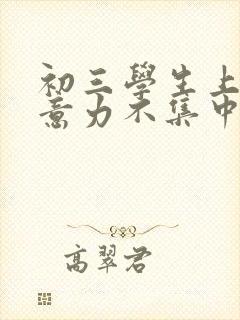 初三學生上
意力不集中
高翠君